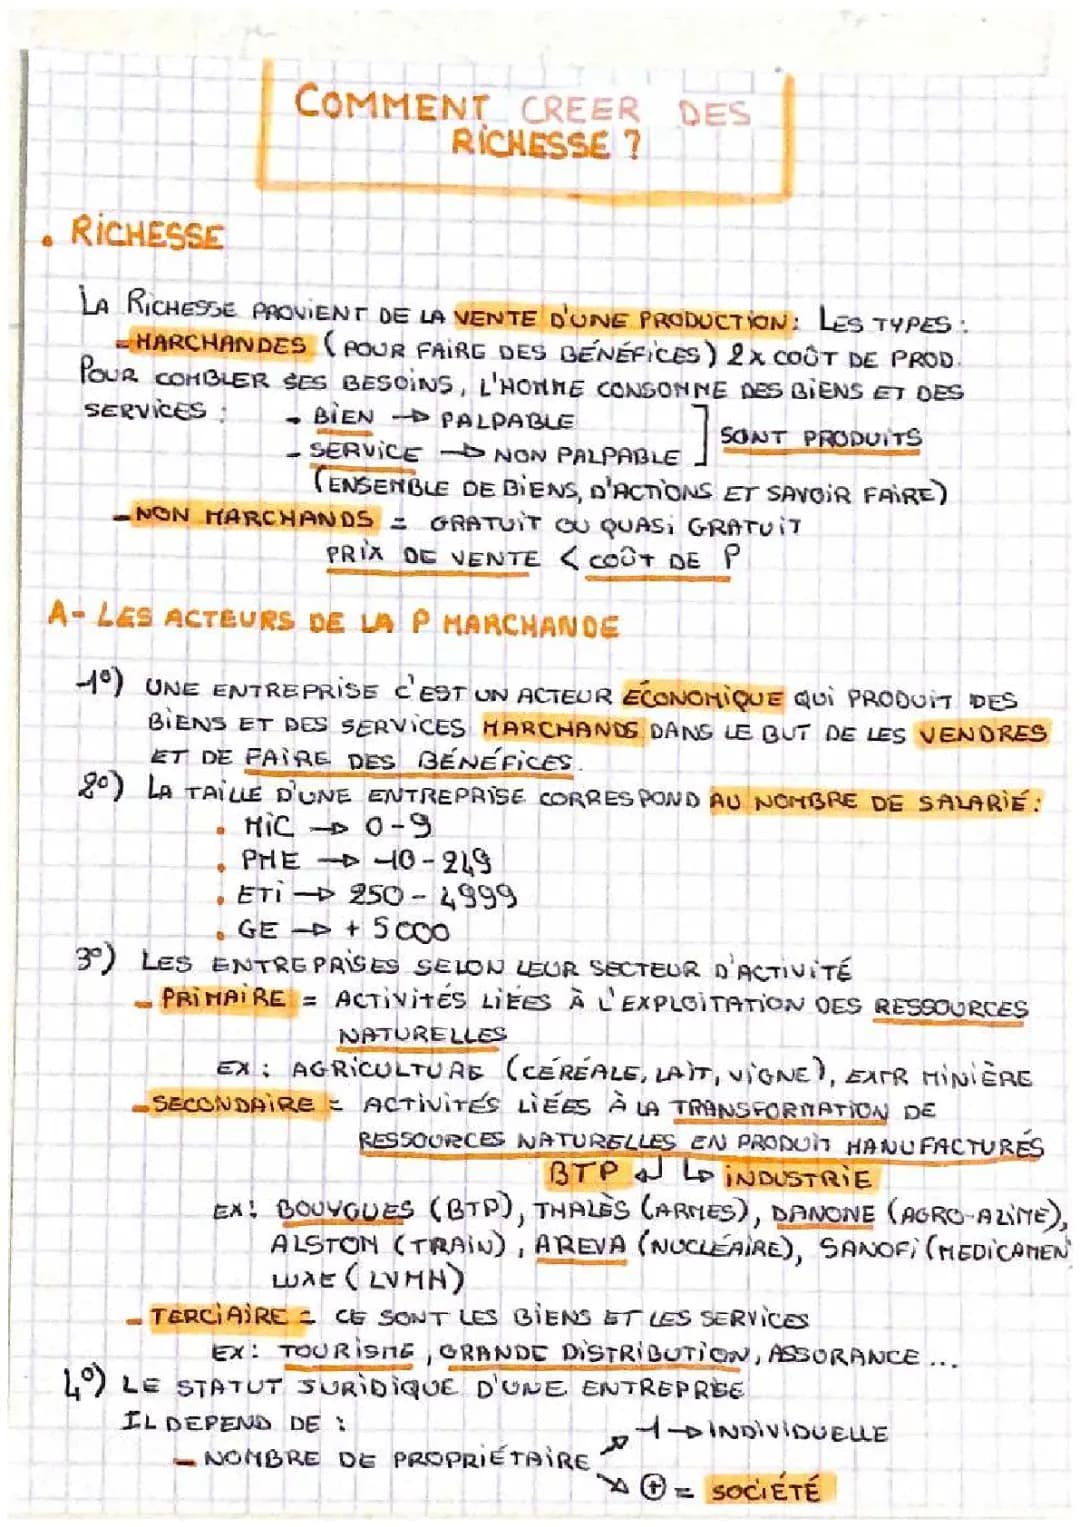 COMMENT CREER DES
RICHESSE ?
• RICHESSE
LA RICHESSE PROVIENT DE LA VENTE D'UNE PRODUCTION: LES TYPES :
- MARCHANDES (POUR FAIRE DES BÉNÉFICES) 2x COÛT DE PROD.
POUR COMBLER SES BESOINS, L'HOMME CONSOMME DES BIENS ET DES
SERVICES :
- BIEN → PALPABLE
- SERVICE → NON PALPABLE
SONT PRODUITS
(ENSEMBLE DE BIENS, D'ACTIONS ET SAVOIR FAIRE)
- NON MARCHANDS = GRATUIT OU QUASI GRATUIT
PRIX DE VENTE < COÛT DE P
A- LES ACTEURS DE LA P MARCHANDE
1°) UNE ENTREPRISE C'EST UN ACTEUR ÉCONOMIQUE QUI PRODUIT DES
BIENS ET DES SERVICES MARCHANDS DANS LE BUT DE LES VENDRES
ET DE FAIRE DES BÉNÉFICES.
2°) LA TAILLE D'UNE ENTREPRISE CORRESPOND AU NOMBRE DE SALARIÉ :
• MIC → 0-9
• PME → 10-249
• ETI → 250-4999
• GE → + 5000
3°) LES ENTREPRISES SELON LEUR SECTEUR D'ACTIVITÉ
- PRIMAIRE = ACTIVITÉS LIÉES À L'EXPLOITATION DES RESSOURCES
NATURELLES
EX : AGRICULTURE (CÉRÉALE, LAIT, VIGNE), EXTR MINIÈRE
- SECONDAIRE = ACTIVITÉS LIÉES À LA TRANSFORMATION DE
RESSOURCES NATURELLES EN PRODUIT MANUFACTURÉS
BTP ↲ ↳ INDUSTRIE
EX: BOUYGUES (BTP), THALÈS (ARMES), DANONE (AGRO-ALIME),
ALSTOM (TRAIN), AREVA (NUCLÉAIRE), SANOFI (MEDICAMEN
LUXE (LVMH)
- TERCIAIRE = CE SONT LES BIENS ET LES SERVICES
EX: TOURISME, GRANDE DISTRIBUTION, ASSURANCE ...
4°) LE STATUT JURIDIQUE D'UNE ENTREPRISE
IL DEPEND DE :
↗ 1 → INDIVIDUELLE
- NOMBRE DE PROPRIÉTAIRE
↘ ⊕ = SOCIÉTÉ